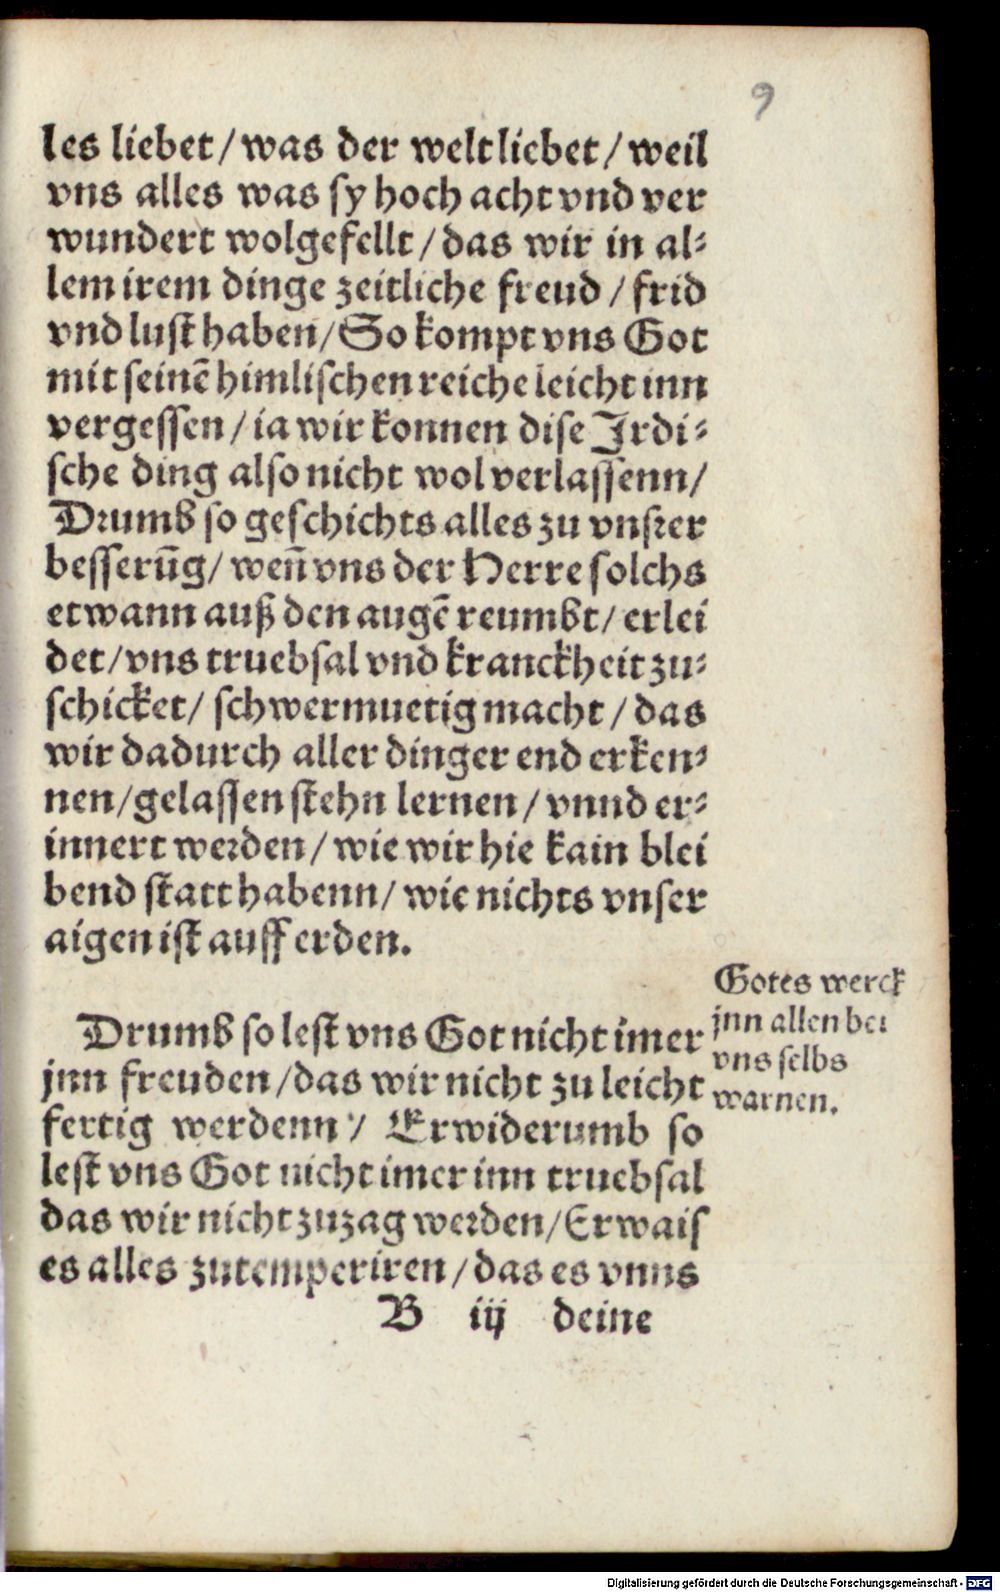 9
les liebet / was der welt liebet / weil
vns alles was sy hoch acht vnd ver
wundert wolgefellt / das wir in al⸗
lem irem dinge zeitliche freud / frid
vnd lust haben / So kompt vns Got
mit seinē himlischen reiche leicht inn
vergessen / ia wir konnen dise Irdi⸗
sche ding also nicht wol verlassenn /
Drumb so geschichts alles zu vnsrer
besserūg / weñ vns der Herre solchs
etwann auß den augē reumbt / erlei
det / vns truebsal vnd kranckheit zu⸗
schicket / schwermuetig macht / das
wir dadurch aller dinger end erken⸗
nen / gelassen stehn lernen / vnnd er⸗
innert werden / wie wir hie kain blei
bend statt habenn / wie nichts vnser
aigen ist auff erden.
Drumb so lest vns Got nicht imer
jnn freuden / das wir nicht zu leicht
fertig werdenn / Erwiderumb so
lest vns Got nicht imer inn truebsal
das wir nicht zuzag werden / Er wais
es alles zutemperiren / das es vnns
B iij deine
Gotes werck
jnn allen bei
vns selbs
warnen.
Digitalisierung gefördert durch die Deutsche Forschungsgemeinschaft - DFG